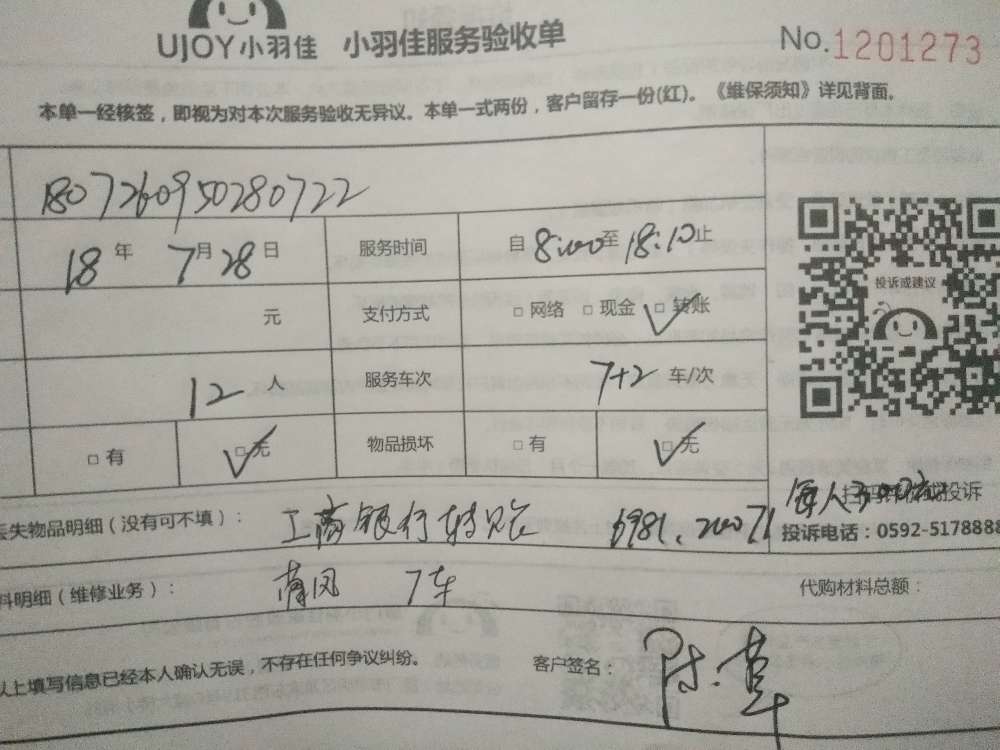 UJOY小羽佳 小羽佳服务验收单 No.1201273
本单一经核签，即视为对本次服务验收无异议。本单一式两份，客户留存一份(红)。《维保须知》详见背面。
1807260950280722
18年7月28日 服务时间 自8:00至18:10止
元 支付方式 □网络 □现金 □转账
12人 服务车次 7+2车/次
□有 □无 物品损坏 □有 □无
投诉或建议
失物品明细（没有可不填）： 工商银行转账
投诉
投诉电话：0592-5178888
料明细（维修业务）： 7车 代购材料总额：
以上填写信息已经本人确认无误，不存在任何争议纠纷。 客户签名：